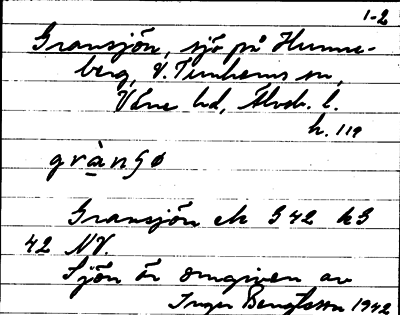 1-2
Gransjön, sjö på Hunne-
berg, V. Tunhems sn,
Väne hd, Älvsb. l.
h. 119
grànʃø
Gransjön ek S 42 kS
42 NV.
Sjön är omgiven av
Inger Bengtsson 1942